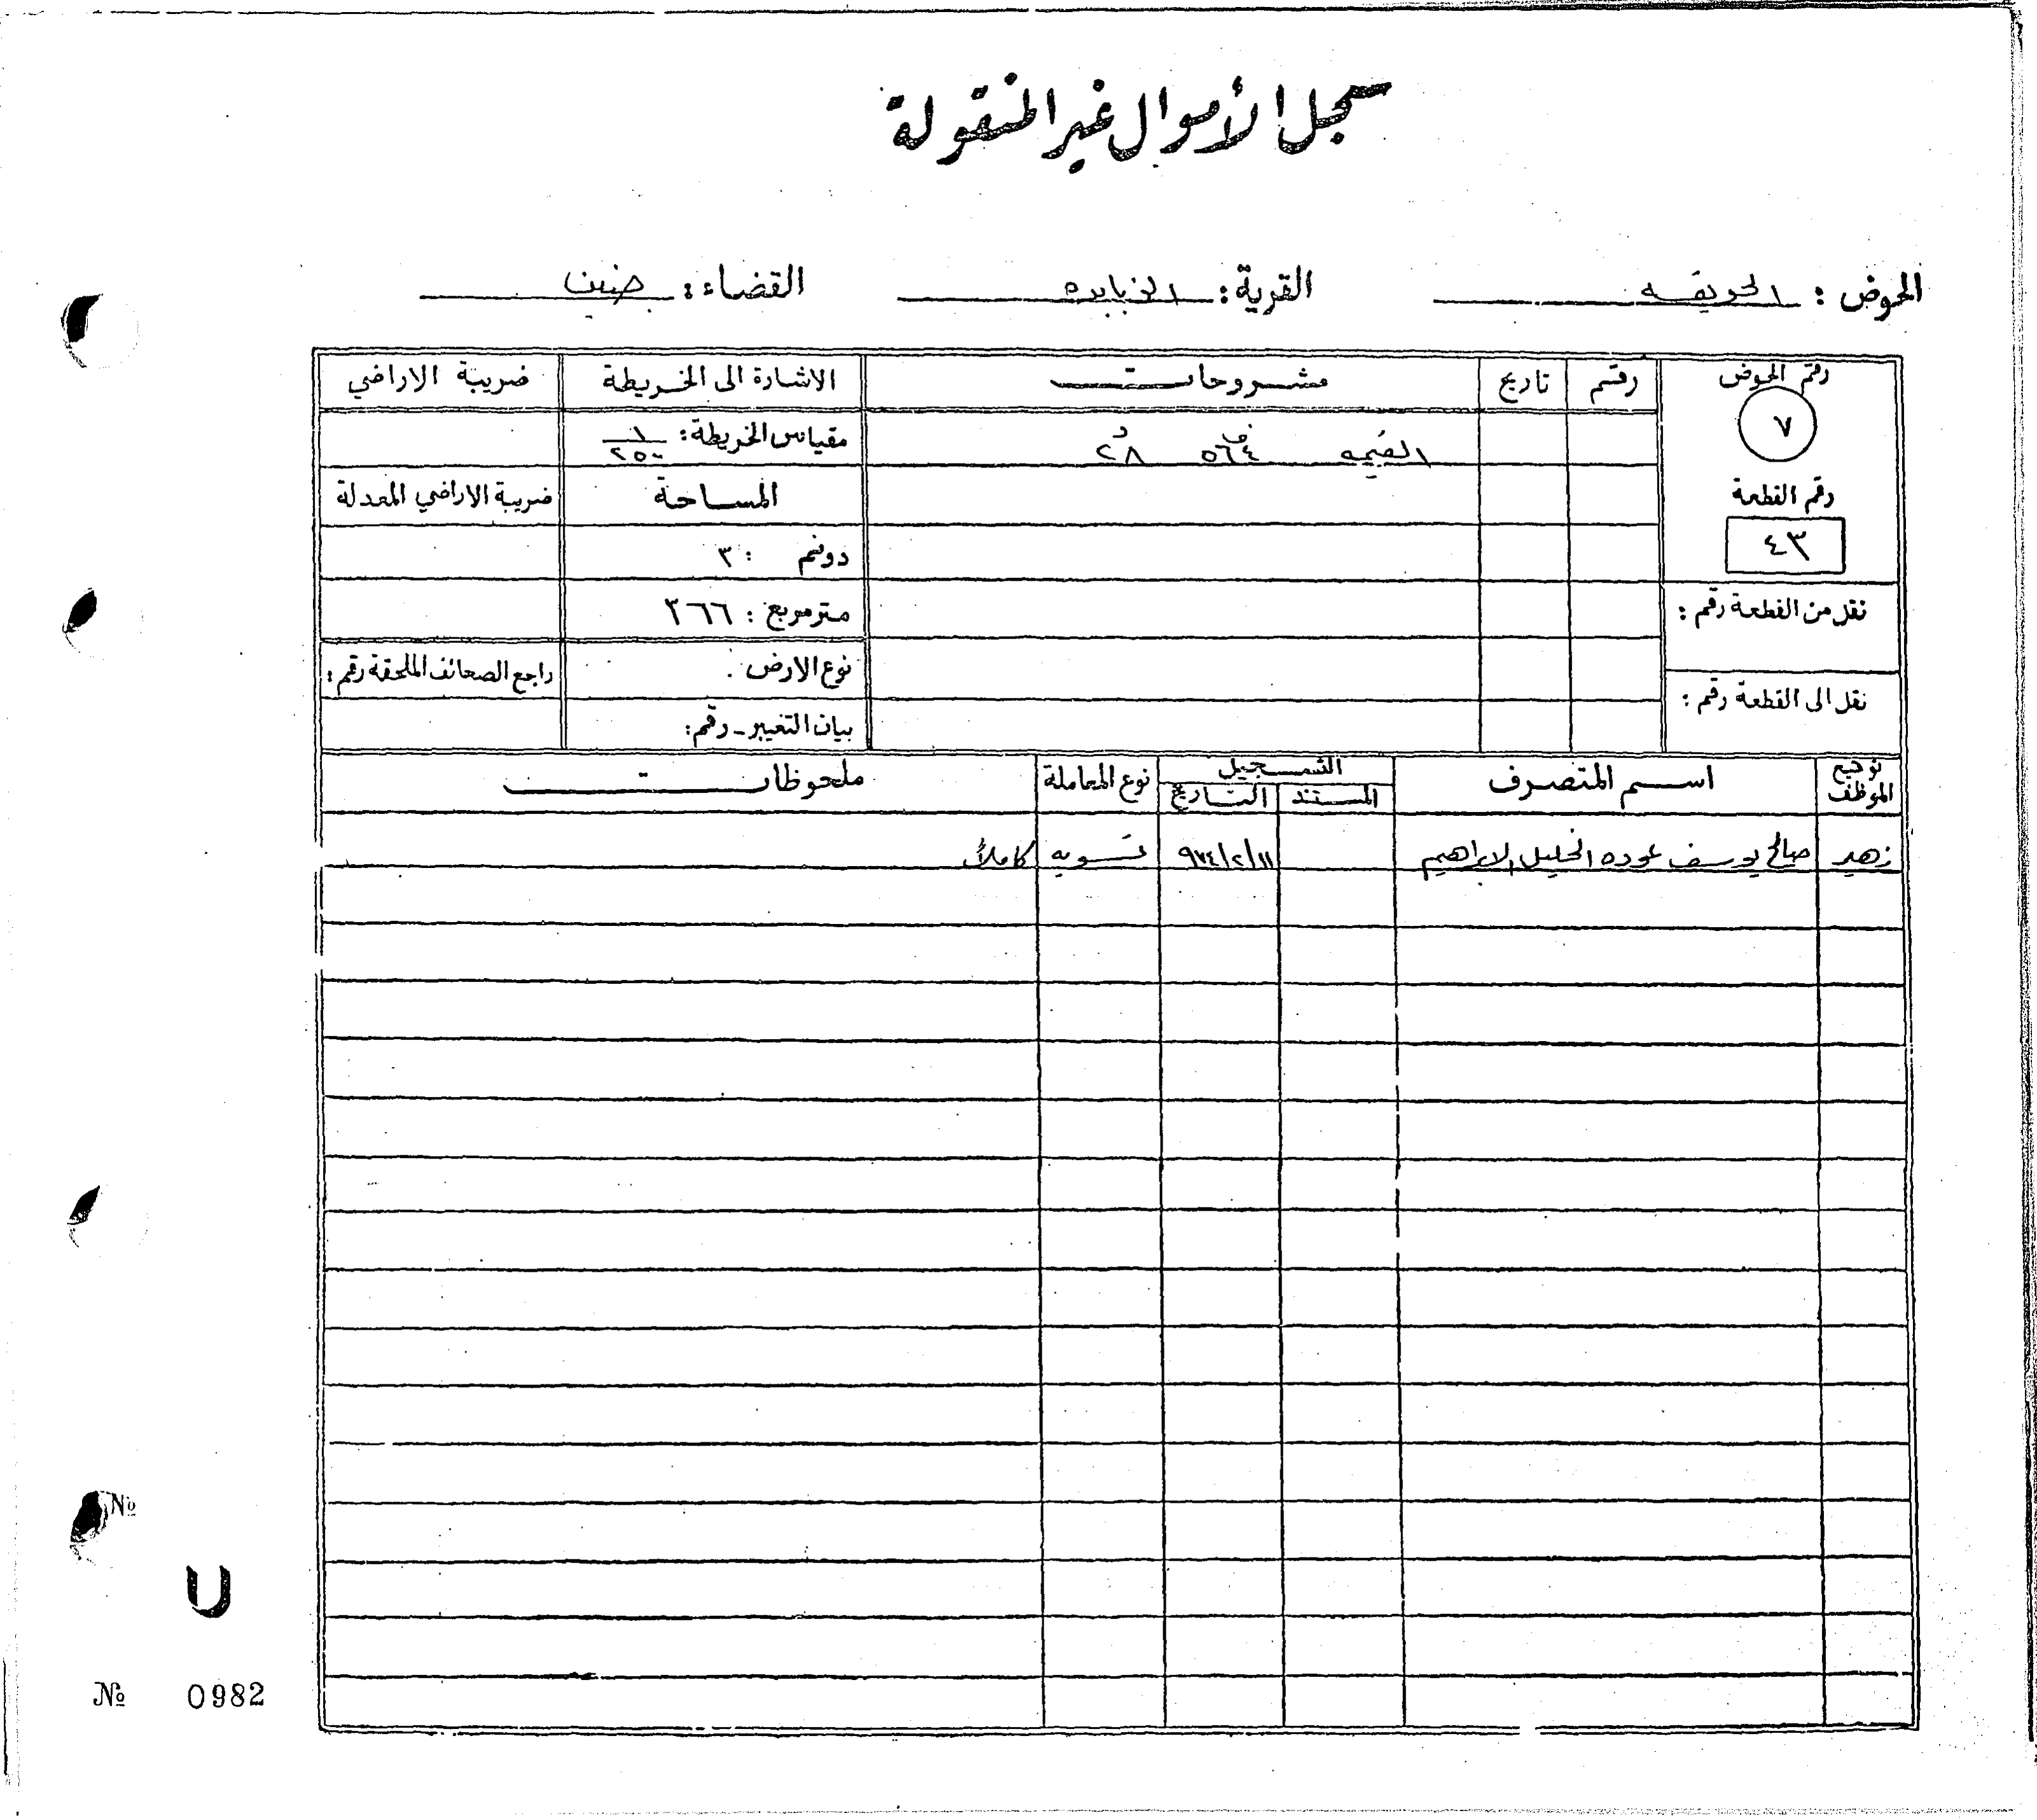 سجل الأموال غير المنقولة
الحوض : الحريقه القرية : الزبابده القضاء : جنين
رقم الحوض رقم تاريخ مشروحات الاشارة الى الخريطة ضريبة الاراضي
٧ القيمه ٥٦٤ ف ٢٨ د مقياس الخريطة : ١/٢٥٠٠
رقم القطعة المساحة ضريبة الاراضي المعدلة
٤٣ دونم : ٣
نقل من القطعة رقم : متر مربع : ٣٦٦
نوع الارض . راجع الصحائف الملحقة رقم :
نقل الى القطعة رقم : بيان التغيير - رقم :
توقيع الموظف اسم المتصرف التسجيل نوع المعاملة ملحوظات
المستند التاريخ
زهير صالح يوسف عوده الخليل الابراهيم ٩٧٤/٢/١١ تسويه كاملاً
№
U
№ 0982